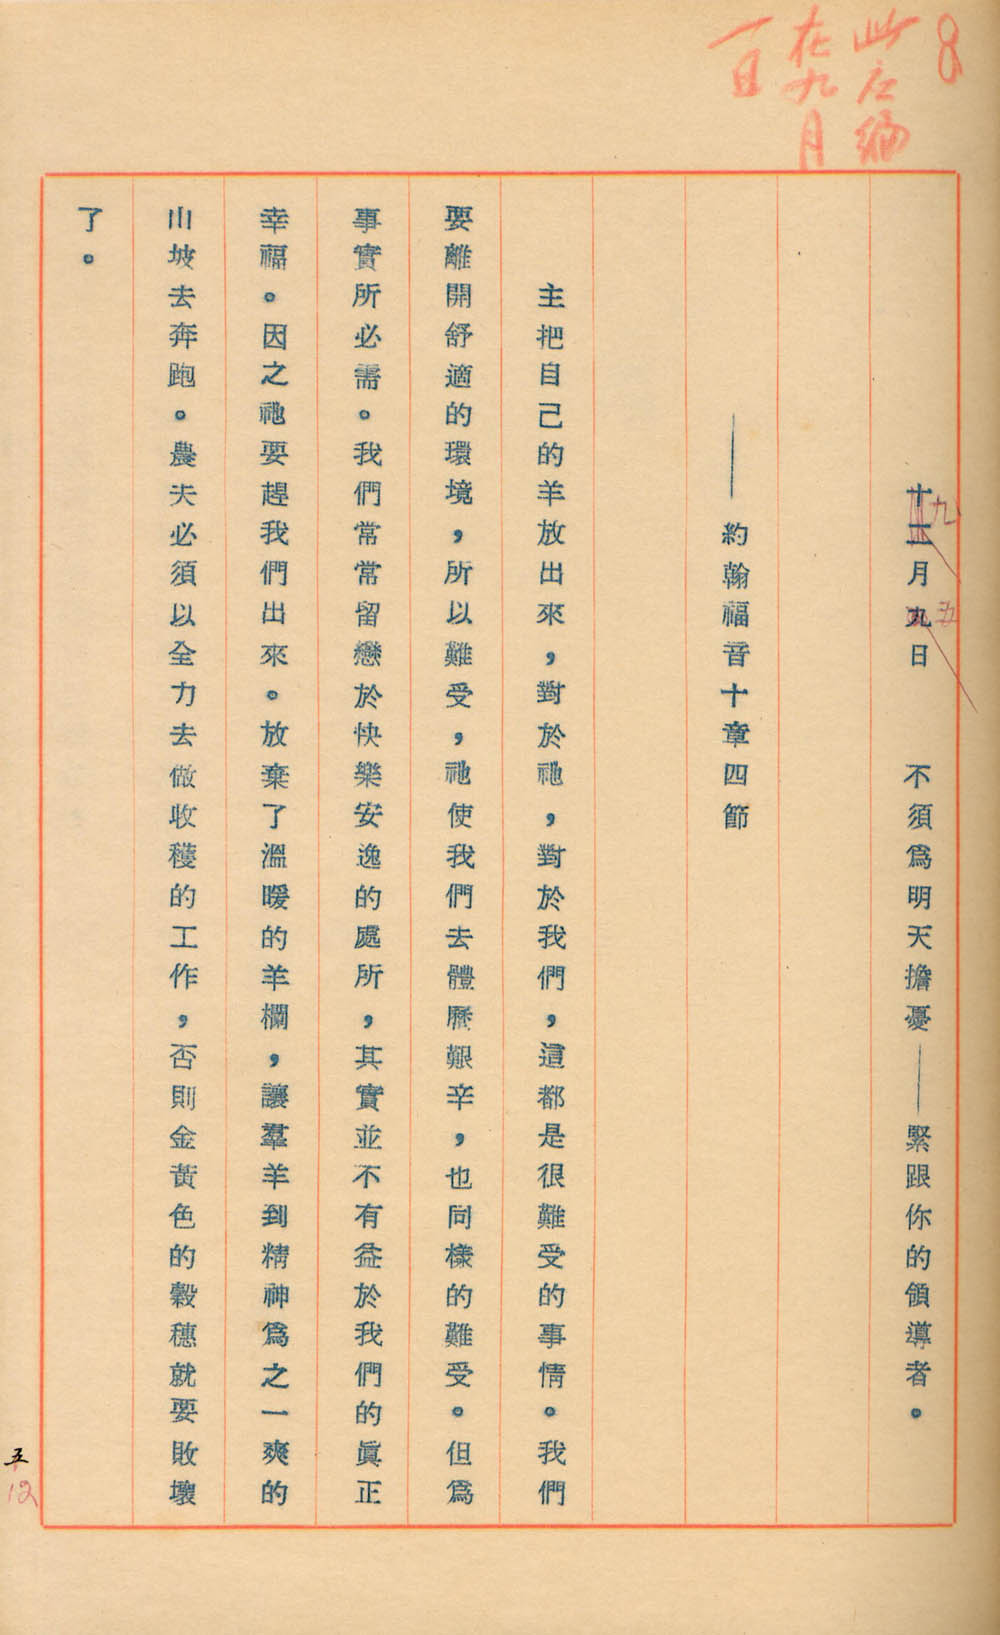 8
此应编
在九月
一日
十二月九日　不須爲明天擔憂——緊跟你的領導者。
九
五
——約翰福音十章四節
主把自己的羊放出來，對於祂，對於我們，這都是很難受的事情。我們
要離開舒適的環境，所以難受，祂使我們去體歷艱辛，也同樣的難受。但爲
事實所必需。我們常常留戀於快樂安逸的處所，其實並不有益於我們的眞正
幸福。因之祂要趕我們出來。放棄了溫暖的羊欄，讓羣羊到精神爲之一爽的
山坡去奔跑。農夫必須以全力去做收穫的工作，否則金黃色的穀穗就要敗壞
了。
五
12